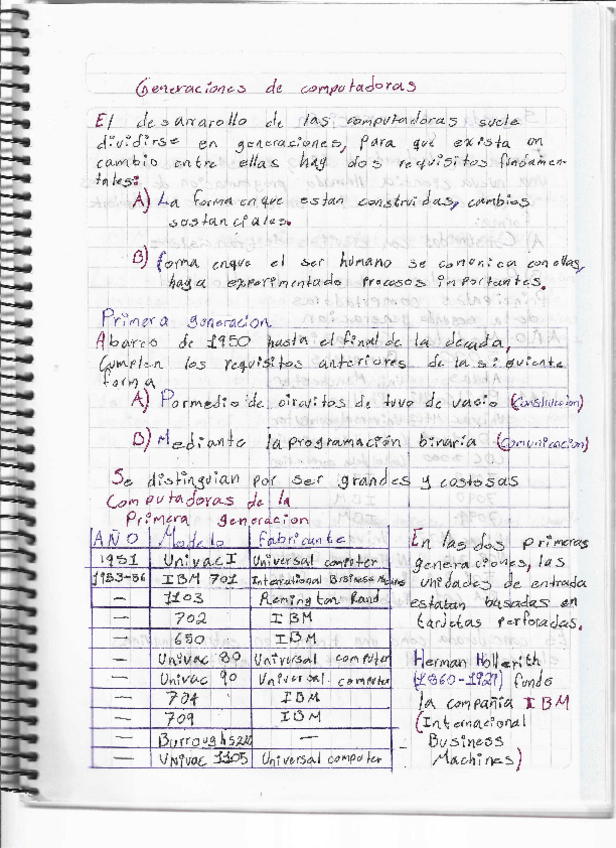 Generaciones de computadoras
El desararollo de las computadoras suele
dividirse en generaciones, Para que exista un
cambio entre ellas hay dos requisitos fundamen-
tales:
A) La forma enque estan construidas, cambios
sustanciales.
B) forma enque el ser humano se comunica conellas,
haya experimentado procesos importantes.
Primera generacion
Abarco de 1950 hasta el final de la decada,
Cumplen los requisitos anteriores de la siguiente
forma
A) Pormedio de circuitos de tuvo de vacio (Construccion)
B) Mediante la programación binaria (Comunicacion)
Se distinguian por ser grandes y costosas
Computadoras de la
Primera generacion
AÑO Modelo Fabricante
1951 Univac I Universal computer
1953-56 IBM 701 International Business
— 1103 Remington Rand
— 702 IBM
— 650 IBM
— Univac 80 Universal computer
— Univac 90 Universal computer
— 704 IBM
— 709 IBM
— Burroughs220 —
— Univac 1105 Universal computer
En las dos primeras
generaciones, las
unidades de entrada
estaban basadas en
tarjetas perforadas.
Herman Hollerith
(1860-1927) fundo
la compañia IBM
(Internacional
Business
Machines)